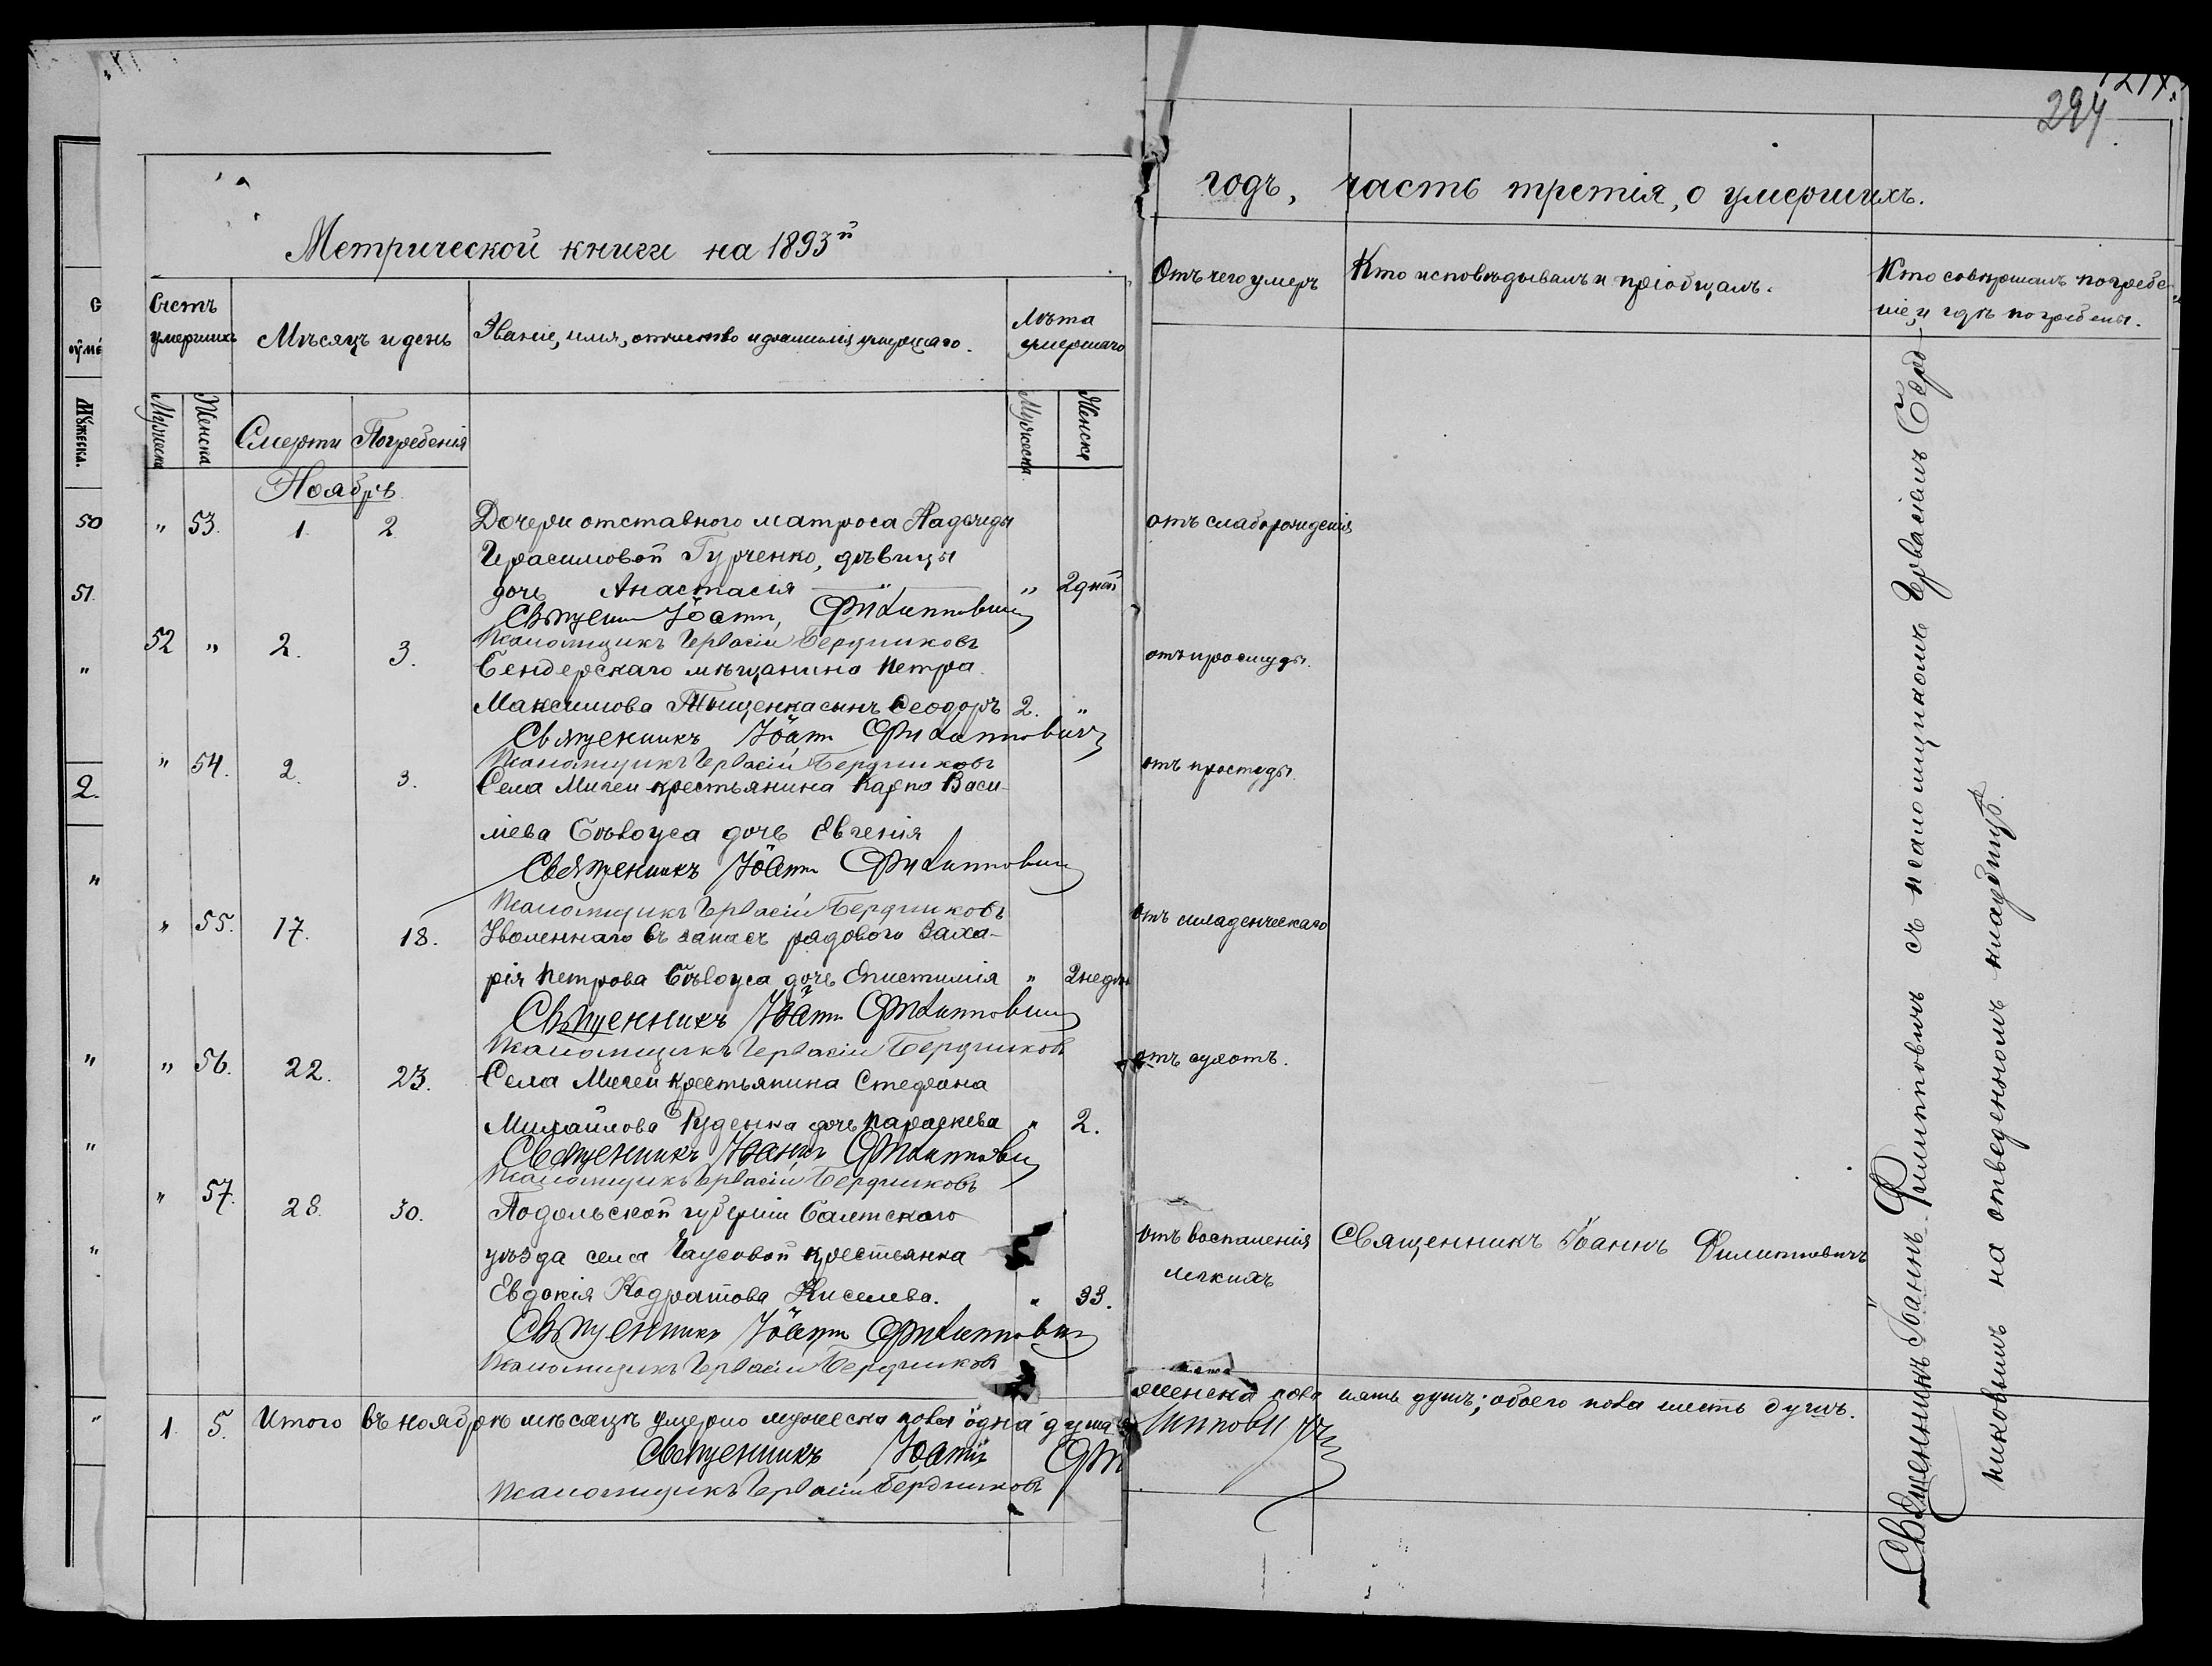 1217.
294
Метрической книги на 1893й
годъ, часть третія, о умершихъ.
Счетъ умершихъ
Мѣсяцъ и день
Званіе, имя, отчество и фамилія умершаго.
Лѣта умершаго
Отъ чего умеръ
Кто исповѣдывалъ и пріобщалъ.
Кто совершалъ погребе-
ніе, и гдѣ погребены.
Мужеска
Женска
Смерти
Погребенія
Мужеска.
Женска
Мужеска.
Ноябрь
50
" 53. 1. 2. Дочери отставного матроса Надежды отъ слаборожденія
Герасимовой Гурченко, дѣвицы
51.
дочь Анастасія " " 2 дней
Священникъ Іоаннъ Филипповичъ
Псаломщикъ Гервасій Бердниковъ
52 " 2. 3. Бендерскаго мѣщанина Петра отъ простуды.
"
Максимова Тищенка сынъ Феодоръ 2. "
Священникъ Іоаннъ Филипповичъ
Псаломщикъ Гервасій Бердниковъ
" 54. 2. 3. Села Мигеи крестьянина Карпа Васи- отъ простуды.
2.
лiева Бѣлоуса дочь Евгенія
Священникъ Іоаннъ Филипповичъ
"
Псаломщикъ Гервасій Бердниковъ
" 55. 17. 18. Уволеннаго въ запасъ рядового Заха- отъ младенческаго
рія Петрова Бѣлоуса дочь Епистимія " 2 недѣли
Священникъ Іоаннъ Филипповичъ
Псаломщикъ Гервасій Бердниковъ
" " 56. 22. 23. Села Мигеи крестьянина Стефана отъ сухотъ.
Михайлова Руденка дочь Параскева " 2.
"
Священникъ Іоаннъ Филипповичъ
Псаломщикъ Гервасій Бердниковъ
" 57. 28. 30. Подольской губерніи Балтскаго
" уѣзда села Чаусовой крестьянка отъ воспаленія Священникъ Іоаннъ Филипповичъ
Евдокія Кодратова Киселева. " 33. легкихъ
Священникъ Іоаннъ Филипповичъ
Псаломщикъ Гервасій Бердниковъ
1. 5. Итого въ ноябрѣ мѣсяцѣ умерло мужеска пола одна душа женска пола пять душъ; обоего пола шесть душъ.
Священникъ Іоаннъ Филипповичъ
Псаломщикъ Гервасій Бердниковъ
Священникъ Іоаннъ Филипповичъ съ псаломщикомъ Гервасіемъ Берд-
никовымъ на отведенномъ кладбищѣ.